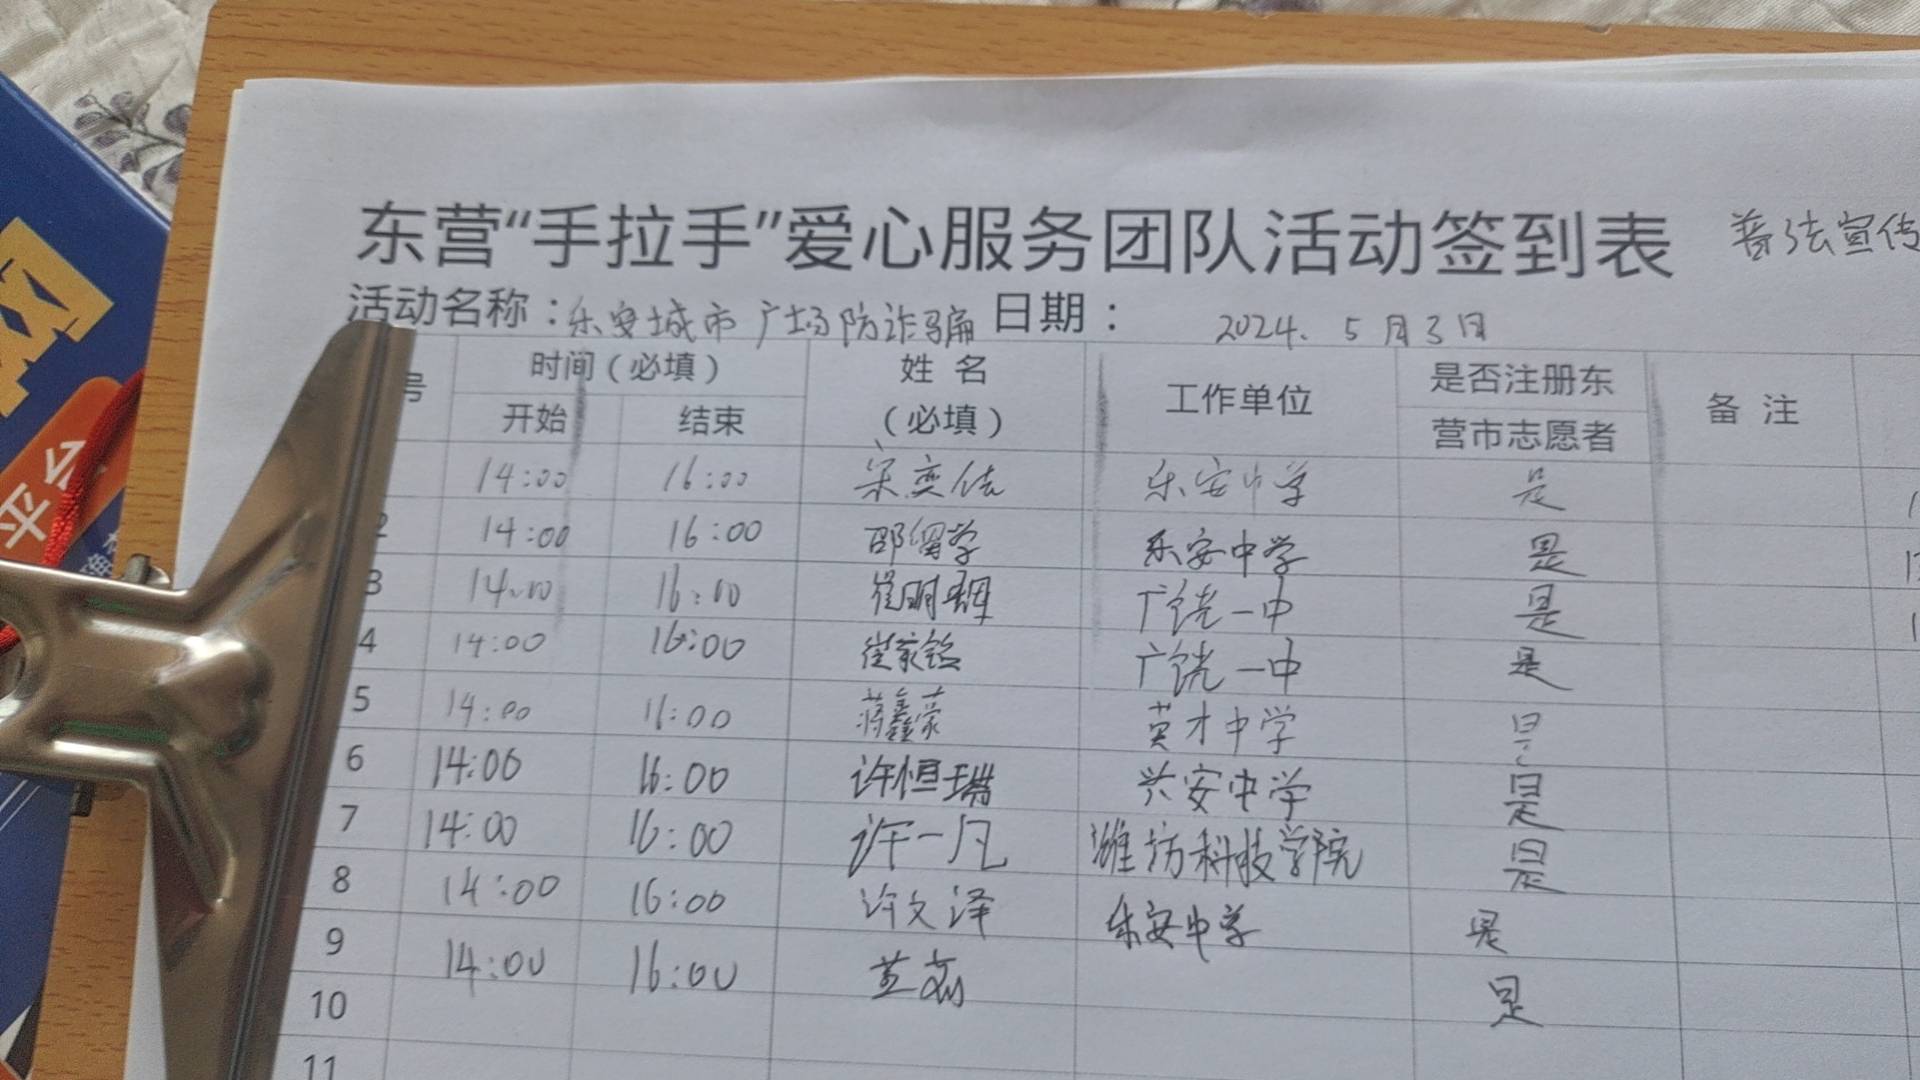 东营“手拉手”爱心服务团队活动签到表 普法宣传
活动名称：乐安城市广场防诈骗 日期： 2024. 5月3日
号 时间（必填） 姓 名（必填） 工作单位 是否注册东营市志愿者 备 注
开始 结束
14:00 16:00 宋奕佳 乐安中学 是
2 14:00 16:00 乐安中学 是
3 14:00 16:00 崔明 广饶一中 是
4 14:00 16:00 崔家铭 广饶一中 是
5 14:00 16:00 蒋鑫蒙 英才中学 是
6 14:00 16:00 许恒瑞 兴安中学 是
7 14:00 16:00 许一凡 潍坊科技学院 是
8 14:00 16:00 许文泽 乐安中学 是
9 14:00 16:00 是
10
11
平公